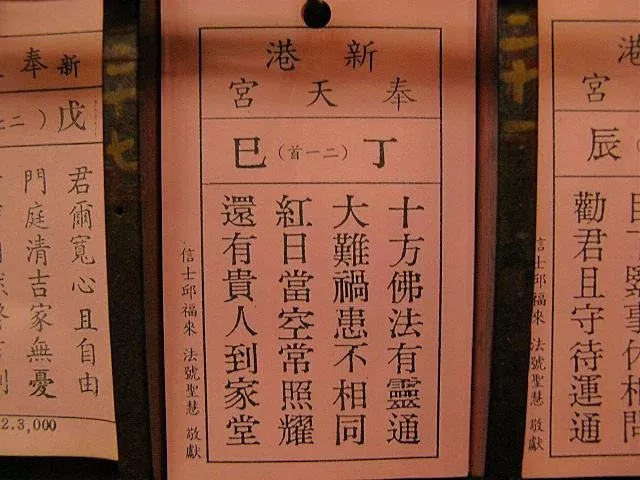 港
宮
辰
緊事休相問
勸君且守待運通
信士邱福來 法號聖慧 敬獻
二十一
新港
奉天宮
丁（二一首）巳
十方佛法有靈通
大難禍患不相同
紅日當空常照耀
還有貴人到家堂
信士邱福來 法號聖慧 敬獻
二十七
新
奉
戊（二七
君爾寬心且自由
門庭清吉家無憂
2.3,000